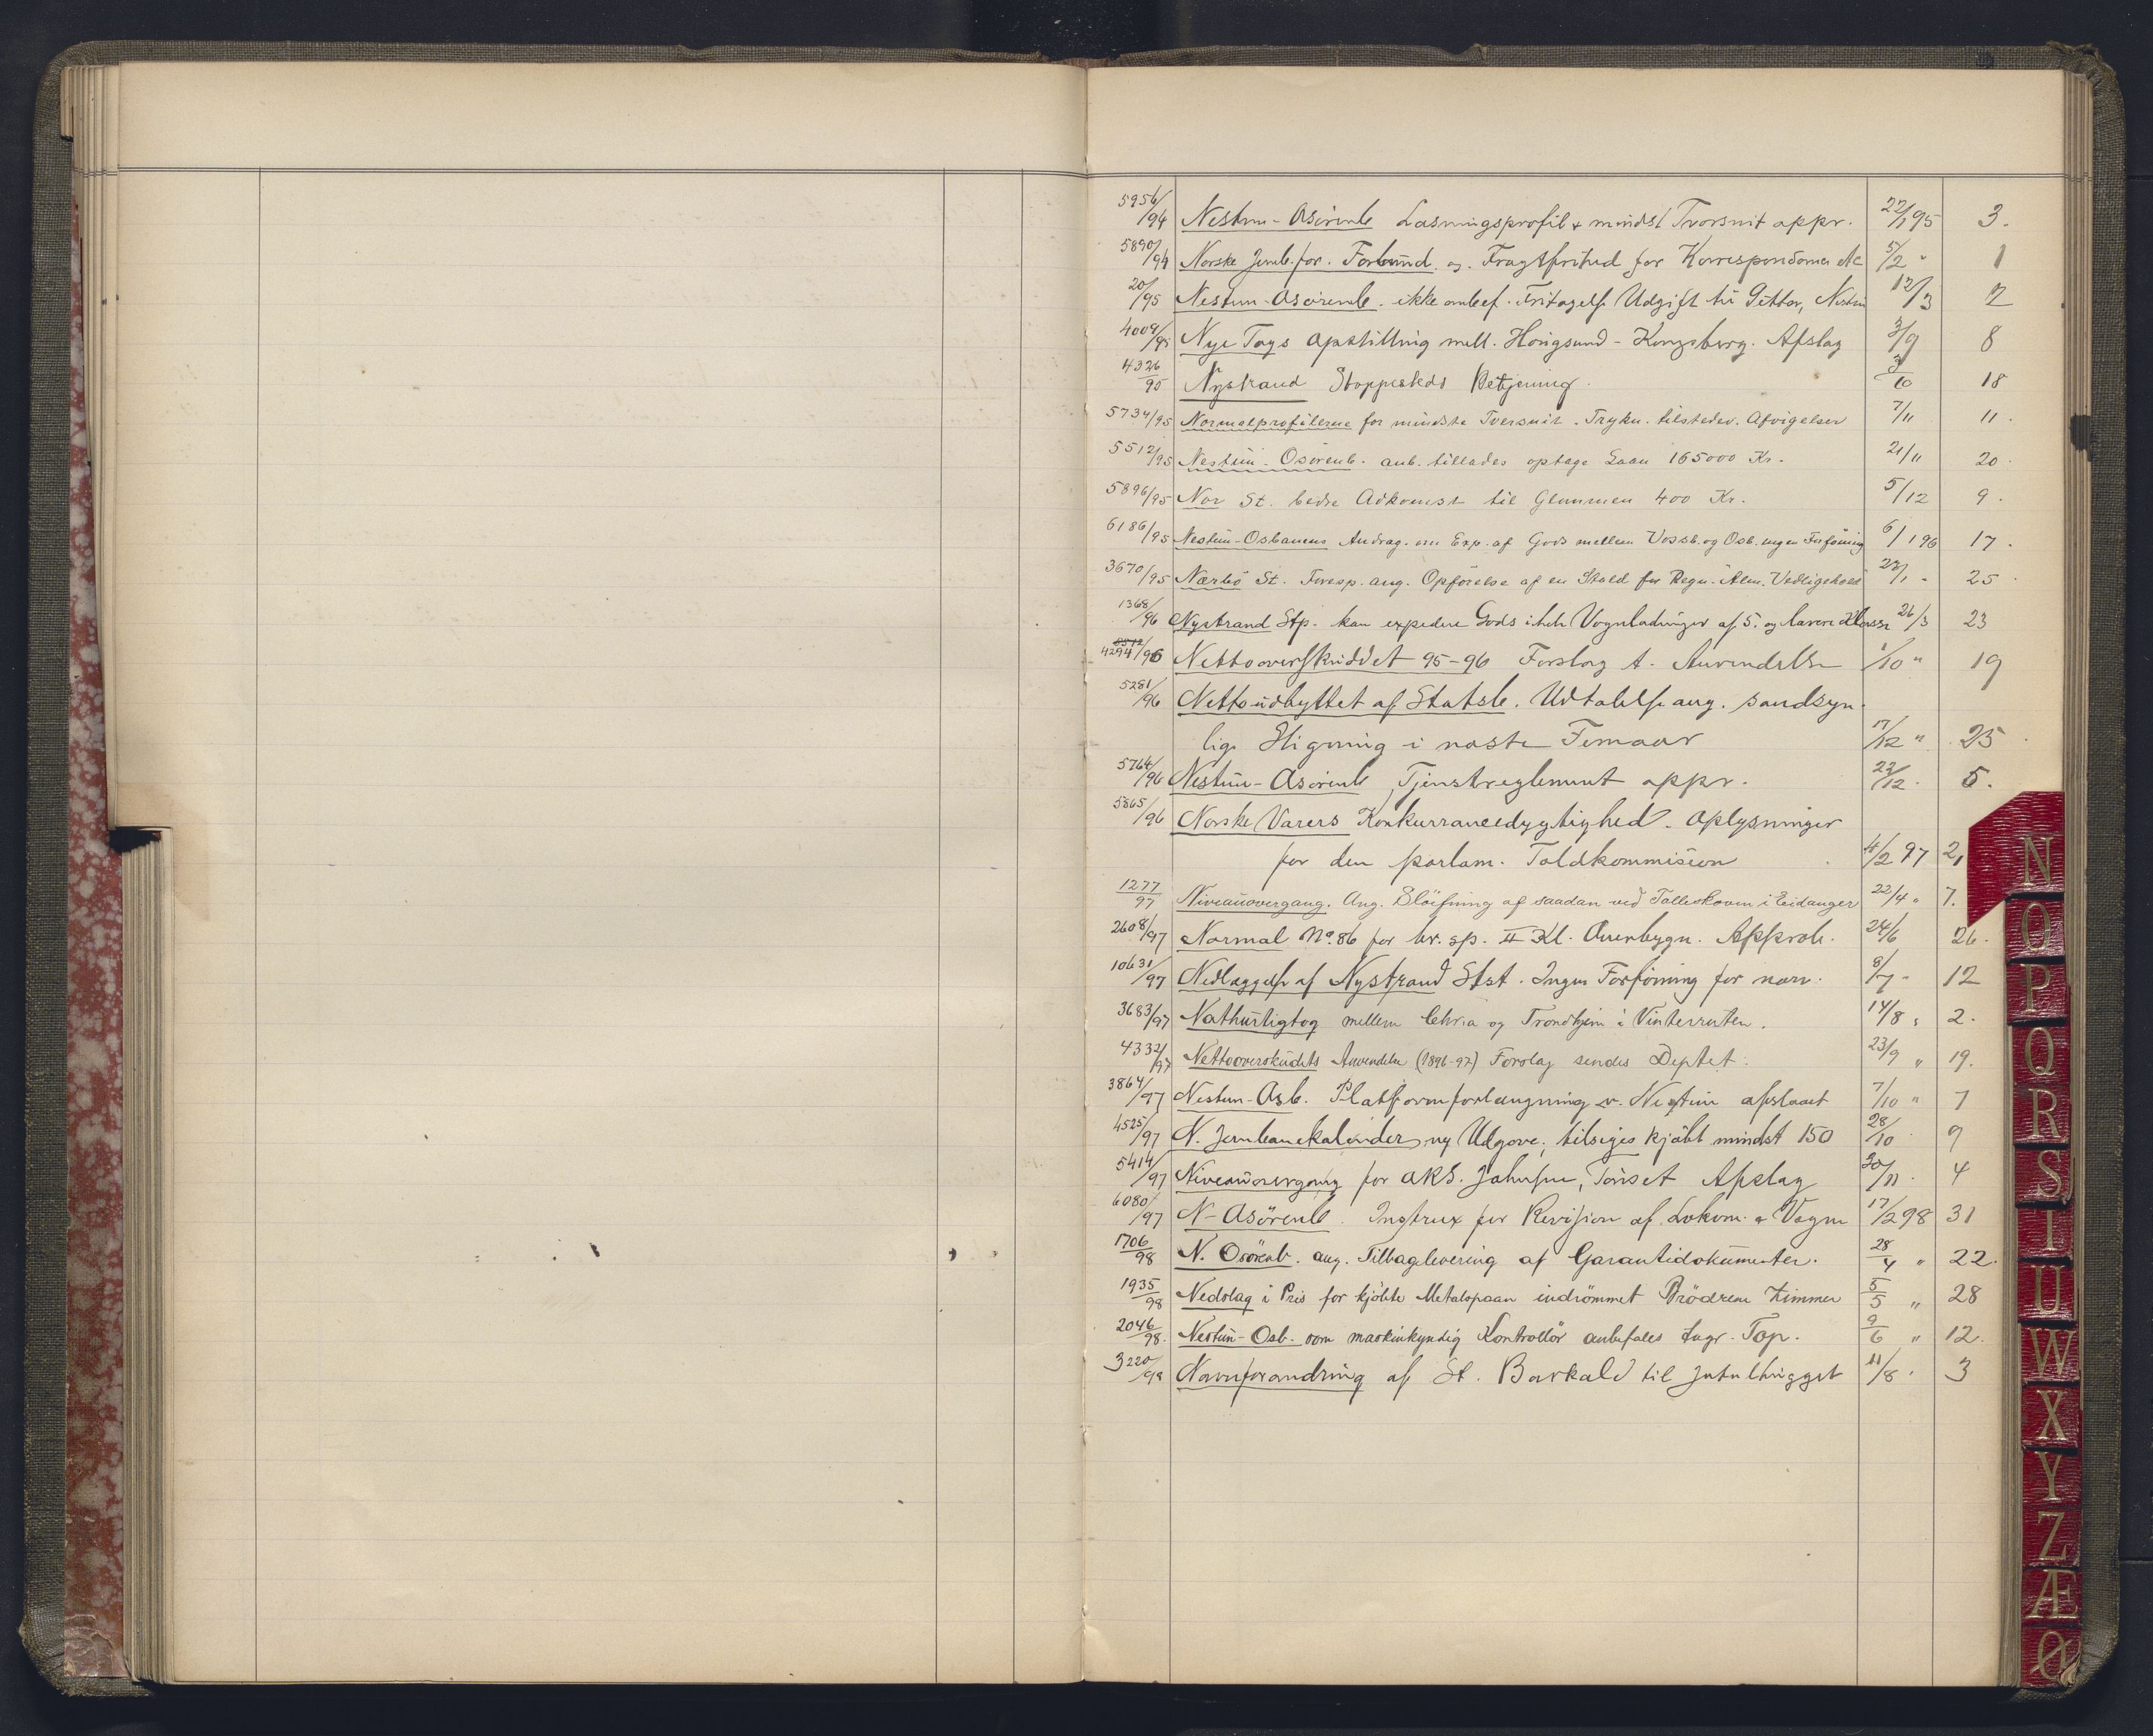 5956/94 Nestun-Osörenb Lasningsprofil & mindst Tversnit appr. 22/1 95 3.
5890/94 Norske Jernb. for. Forbund. Fragtfrihed for Korrespondance etc 5/2 " 1
20/95 Nestun-Osörenb. ikke anbef. Fritagelse Udgift til Gitter, Nestun 12/3 2
4009/95 Nye Togs Opstilling mell. Hougsund - Kongsberg. Afslag 3/9 8
4326/95 Nystrand Stoppesteds Betjening. 3/10 18
5734/95 Normalprofilerne for mindste Tversnit. Trykn. tilstedev. Afvigelser 7/11 11.
5512/95 Nestun-Osörenb. anb. tillades optage Laan 165000 Kr. 21/11 20.
5896/95 Nor St. bedre Adkomst til Glommen 400 Kr. 5/12 9.
6186/95 Nestun-Osbanens Andrag. om Exp. af Gods mellem Vossb. og Osb. ingen Forföining 6/1 96 17.
3670/95 Nærbö St. Foresp. ang. Opförelse af en Stald for Regn. Alm. Vedligehold 23/1 " 25
1368/96 Nystrand Stp. kan expedere Gods i hele Vognladninger af 5. og lavere Klasse 26/3 23
4294/96 Nettooverskuddet 95-96 Forslag t. Anvendelse 1/10 " 19
5281/96 Nettoudbyttet af Statsb. Udtalelse ang. sandsyn-
lig Stigning i næste Femaar 17/12 " 25
5764/96 Nestun-Osörenb Tjenstreglement appr. 22/12. 5.
5865/96 Norske Varers Konkurrancedygtighed. Oplysninger
for den parlam. Toldkommission 4/2 97 21
1277/97 Niveauovergang. Ang. Slöifning af saadan ved Tolleskoven i Eidanger 22/4 " 7.
2608/97 Normal No. 86 for br. sp. II Kl. Overbygn. Approb. 24/6 26.
10631/97 Nedlæggelse af Nystrand Stst. Ingen Forföining for nærv. 8/7 - 12
3683/97 Nathurtigtog mellem Chria og Trondhjem i Vinterruten. 14/8 " 2.
4332/97 Nettooverskudets Anvendelse (1896-97) Forslag sendes Deptet. 23/9 " 19.
3864/97 Nestun-Osb. Platformforlængning v. Nestun afslaaet 7/10 " 7
4525/97 N. Jernbanekalender, ny Udgave, tilsiges kjöbt mindst 150 28/10 9
5414/97 Niveauovergang for O.K.S. Johnsen, Tönset Afslag 30/11. 4
6080/97 N-Osörenb. Instrux for Revision af Lokom. & Vogne 17/2 98 31
1706/98 N. Osörenb. ang. Tilbagelevering af Garantidokumenter. 28/4 " 22.
1935/98 Nedslag i Pris for kjöbte Metalspaan indrömmet Brödrene Zimmer 5/5 " 28
2046/98. Nestun-Osb. som maskinkyndig Kontrollör anbefales Ingr. Top. 9/6 " 12.
3220/98 Navneforandring af St. Barkald til Jutulhugget 11/8. 3
N
O
P
Q
R
S
T
U
W
X
Y
Z
Æ
Ø